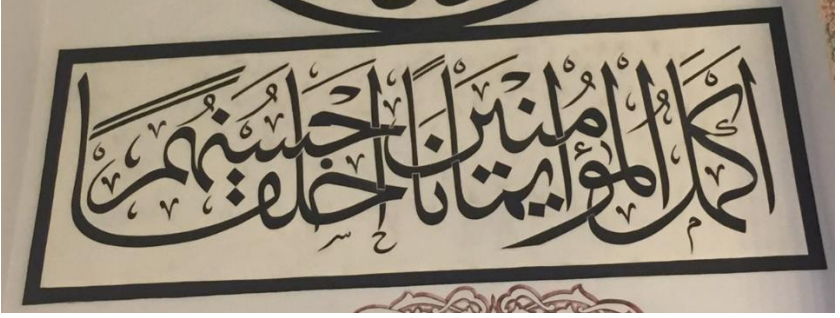 اكمل المؤمنين ايمانا احسنهم خلقا